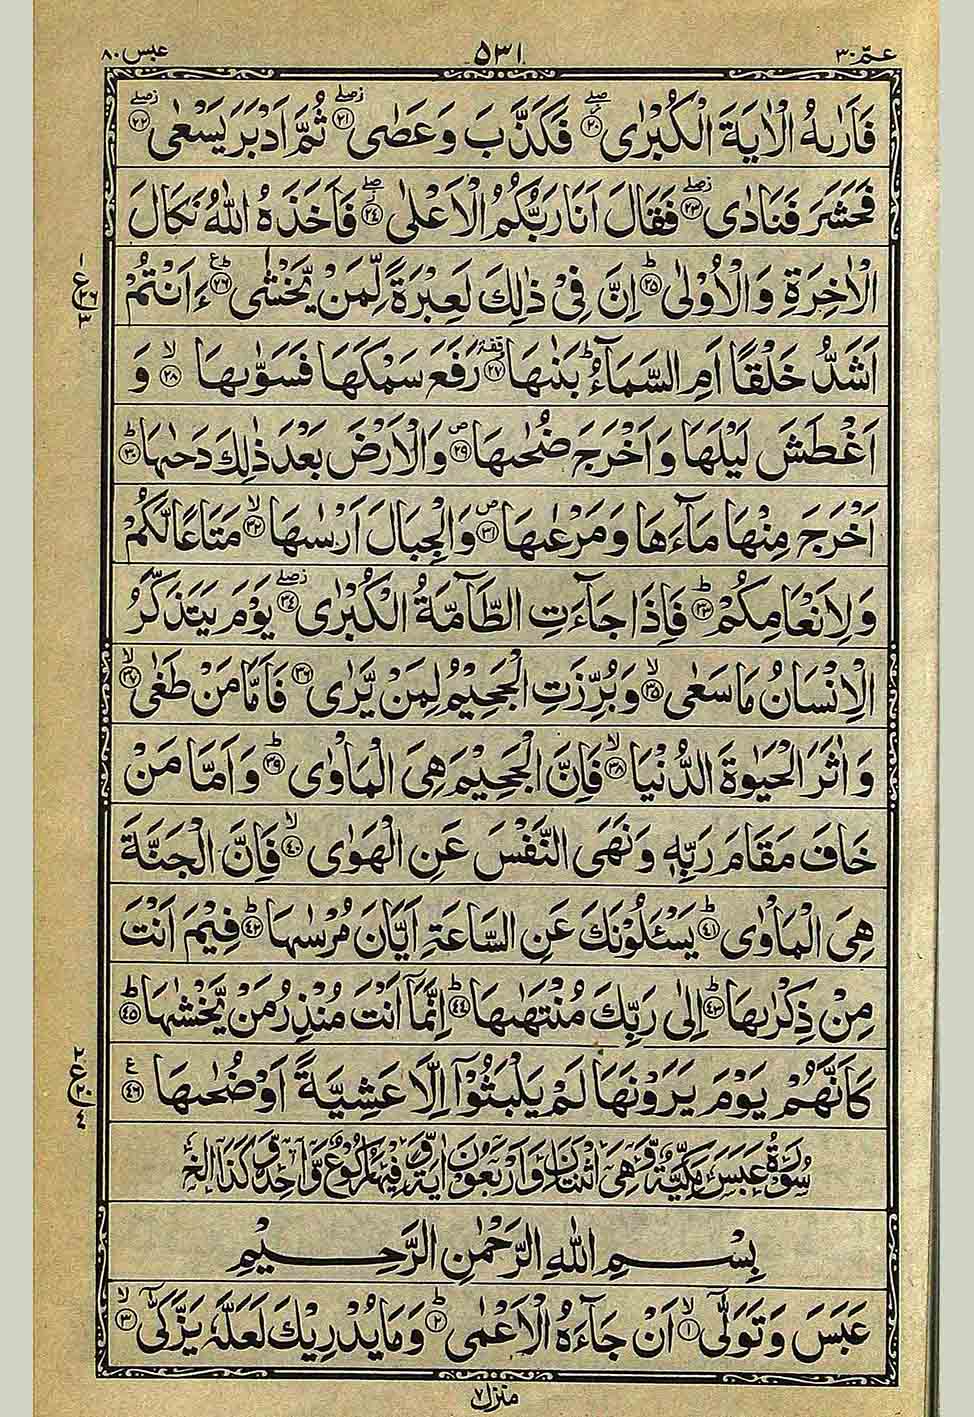 عمّ ٣٠ ٥٣١ عبس ٨٠
فَاَرٰىهُ الْاٰيَةَ الْكُبْرٰى ۖ﴿٢٠﴾ فَكَذَّبَ وَعَصٰى ۖ﴿٢١﴾ ثُمَّ اَدْبَرَ يَسْعٰى ۖ﴿٢٢﴾
فَحَشَرَ فَنَادٰى ۖ﴿٢٣﴾ فَقَالَ اَنَا رَبُّكُمُ الْاَعْلٰى ۖ﴿٢٤﴾ فَاَخَذَهُ اللّٰهُ نَكَالَ
الْاٰخِرَةِ وَالْاُوْلٰى ؕ﴿٢٥﴾ اِنَّ فِىْ ذٰلِكَ لَعِبْرَةً لِّمَنْ يَّخْشٰى ؕ﴿٢٦﴾ ءَاَنْتُمْ
اَشَدُّ خَلْقًا اَمِ السَّمَآءُ ؕ بَنٰىهَا ﴿٢٧﴾ رَفَعَ سَمْكَهَا فَسَوّٰىهَا ۙ﴿٢٨﴾ وَ
اَغْطَشَ لَيْلَهَا وَاَخْرَجَ ضُحٰىهَا ﴿٢٩﴾ وَالْاَرْضَ بَعْدَ ذٰلِكَ دَحٰىهَا ؕ﴿٣٠﴾
اَخْرَجَ مِنْهَا مَآءَهَا وَمَرْعٰىهَا ﴿٣١﴾ وَالْجِبَالَ اَرْسٰىهَا ۙ﴿٣٢﴾ مَتَاعًا لَّكُمْ
وَلِاَنْعَامِكُمْ ؕ﴿٣٣﴾ فَاِذَا جَآءَتِ الطَّآمَّةُ الْكُبْرٰى ۖ﴿٣٤﴾ يَوْمَ يَتَذَكَّرُ
الْاِنْسَانُ مَا سَعٰى ۙ﴿٣٥﴾ وَبُرِّزَتِ الْجَحِيْمُ لِمَنْ يَّرٰى ﴿٣٦﴾ فَاَمَّا مَنْ طَغٰى ۙ﴿٣٧﴾
وَاٰثَرَ الْحَيٰوةَ الدُّنْيَا ۙ﴿٣٨﴾ فَاِنَّ الْجَحِيْمَ هِىَ الْمَاْوٰى ؕ﴿٣٩﴾ وَاَمَّا مَنْ
خَافَ مَقَامَ رَبِّهٖ وَنَهَى النَّفْسَ عَنِ الْهَوٰى ۙ﴿٤٠﴾ فَاِنَّ الْجَنَّةَ
هِىَ الْمَاْوٰى ؕ﴿٤١﴾ يَسْـَٔلُوْنَكَ عَنِ السَّاعَةِ اَيَّانَ مُرْسٰىهَا ؕ﴿٤٢﴾ فِيْمَ اَنْتَ
مِنْ ذِكْرٰىهَا ؕ﴿٤٣﴾ اِلٰى رَبِّكَ مُنْتَهٰىهَا ؕ﴿٤٤﴾ اِنَّمَآ اَنْتَ مُنْذِرُ مَنْ يَّخْشٰىهَا ؕ﴿٤٥﴾
كَاَنَّهُمْ يَوْمَ يَرَوْنَهَا لَمْ يَلْبَثُوْٓا اِلَّا عَشِيَّةً اَوْ ضُحٰىهَا ﴿٤٦﴾
سُوْرَةُ عَبَسَ مَكِّيَّةٌ وَّهِىَ اثْنَتَانِ وَاَرْبَعُوْنَ اٰيَةً وَّفِيْهَا رُكُوْعٌ وَّاحِدٌ
بِسْمِ اللّٰهِ الرَّحْمٰنِ الرَّحِيْمِ
عَبَسَ وَتَوَلّٰٓى ۙ﴿١﴾ اَنْ جَآءَهُ الْاَعْمٰى ؕ﴿٢﴾ وَمَا يُدْرِيْكَ لَعَلَّهٗ يَزَّكّٰٓى ۙ﴿٣﴾
منزل ٧